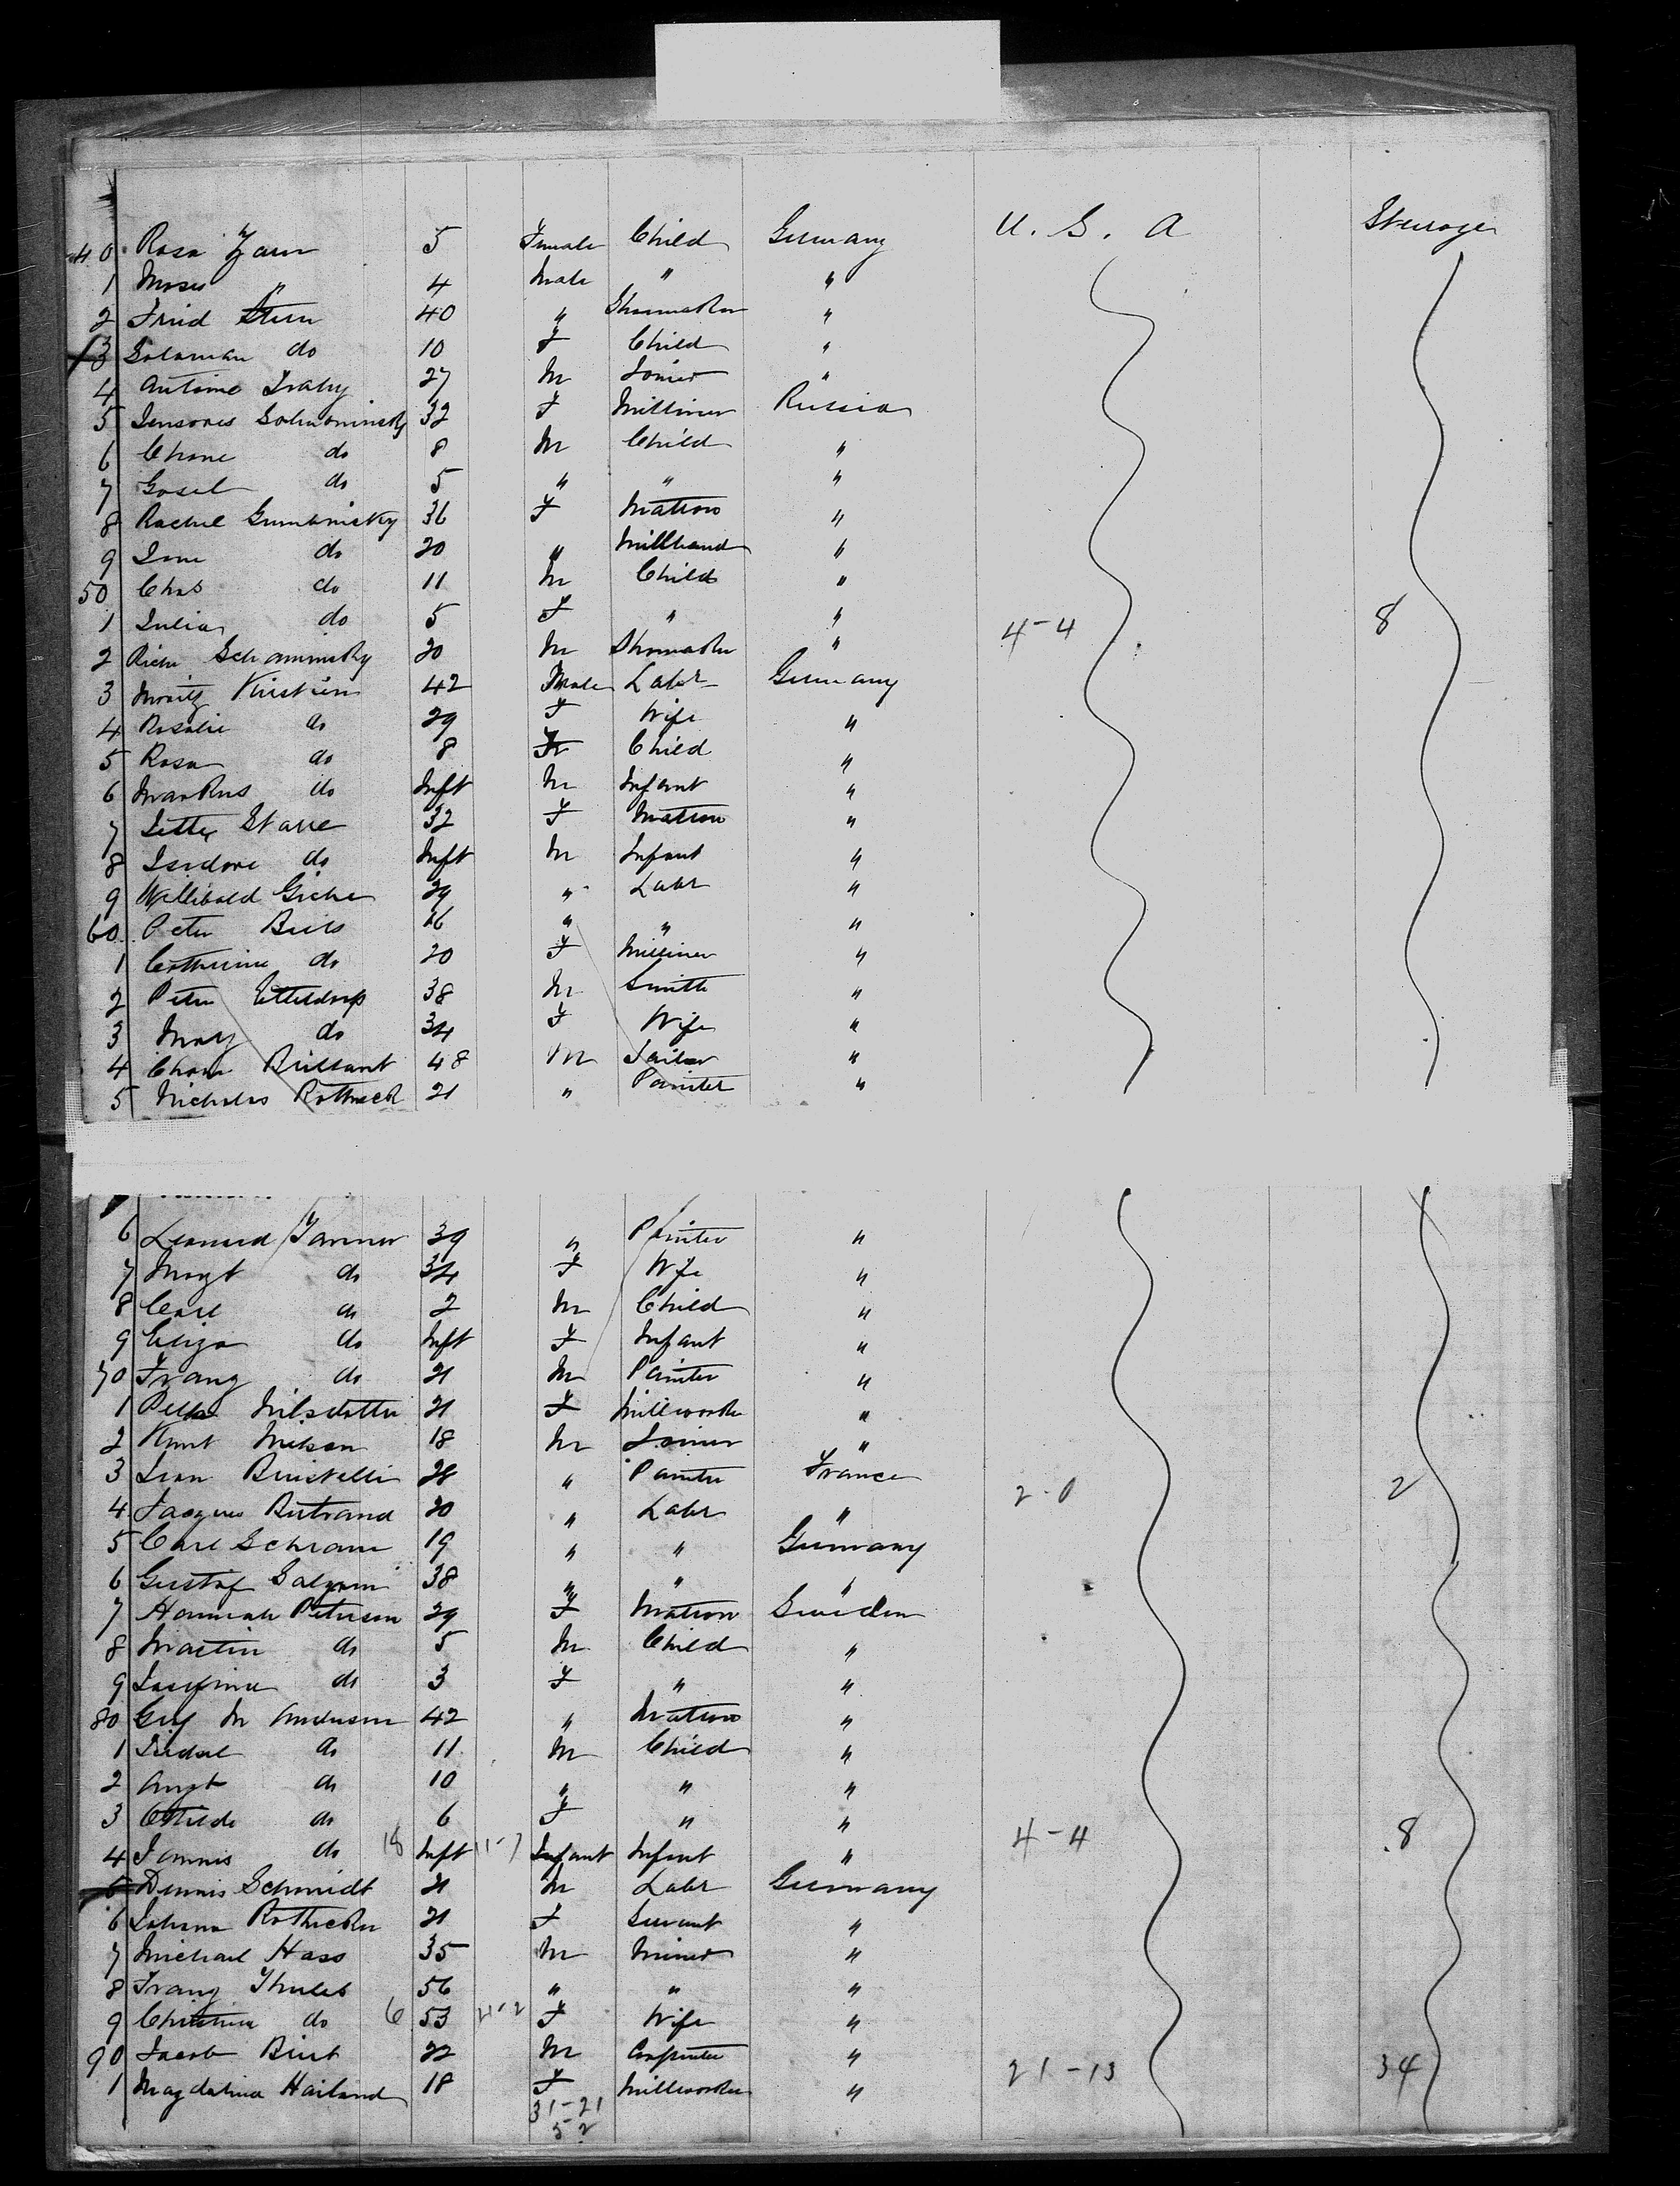 40 Rosa Zarn 5 Female Child Germany U. S. A Steerage
1 Moses " 4 Male " "
2 Fried Stern 40 " Shoemaker "
3 Solaman do 10 F Child "
4 Antime 27 M Joiner "
5 32 F Milliner Russia
6 Chane do 8 M Child "
7 Gosel do 5 " " "
8 Rachel 36 F Matron "
9 do 20 " Millhand "
50 Chas do 11 M Child "
1 Julia do 5 F " " 4-4 8
2 20 M Shoemaker "
3 Moritz Kirstein 42 Male Labr Germany
4 Rosalie do 29 F Wife "
5 Rosa do 8 F Child "
6 Markus do Inft M Infant "
7 32 F Matron "
8 Isidore do Inft M Infant "
9 Willibald 29 " Labr "
60 Peter 16 " " "
1 Catherine do 20 F Milliner "
2 Peter Etteldorf 38 M Smith "
3 Mary do 34 F Wife "
4 48 M Tailor "
5 Nicholas 21 " Painter "
6 Leonard 39 " Painter "
7 Magt do 34 F Wife "
8 Carl do 2 M Child "
9 Eliza do Inft F Infant "
70 Franz do 21 M Painter "
1 Nilsdotter 21 F Millworker "
2 Knut Nilson 18 M Joiner "
3 28 " Painter France 2-0 2
4 Jacques Bertrand 20 " Labr "
5 Carl Schram 19 " " Germany
6 Gustaf 38 " " "
7 Hannah Peterson 29 F Matron Sweden
8 Martin do 5 M Child "
9 Josefina do 3 F " "
80 M Anderson 42 " Matron "
1 do 11 M Child "
2 Augt do 10 " " "
3 Otilde do 6 F " " 4-4 8
4 do 18 Inft 11-7 Infant Infant "
5 Dennis Schmidt 21 M Labr Germany
6 Johana 21 F Servant "
7 Michael Hass 35 M Miner "
8 Franz 56 " " "
9 Christina do 6 53 4-2 F Wife "
90 Jacob 22 M Carpenter " 21-13 34
1 Magdalina Hailand 18 F Millworker "
31-21
5-2